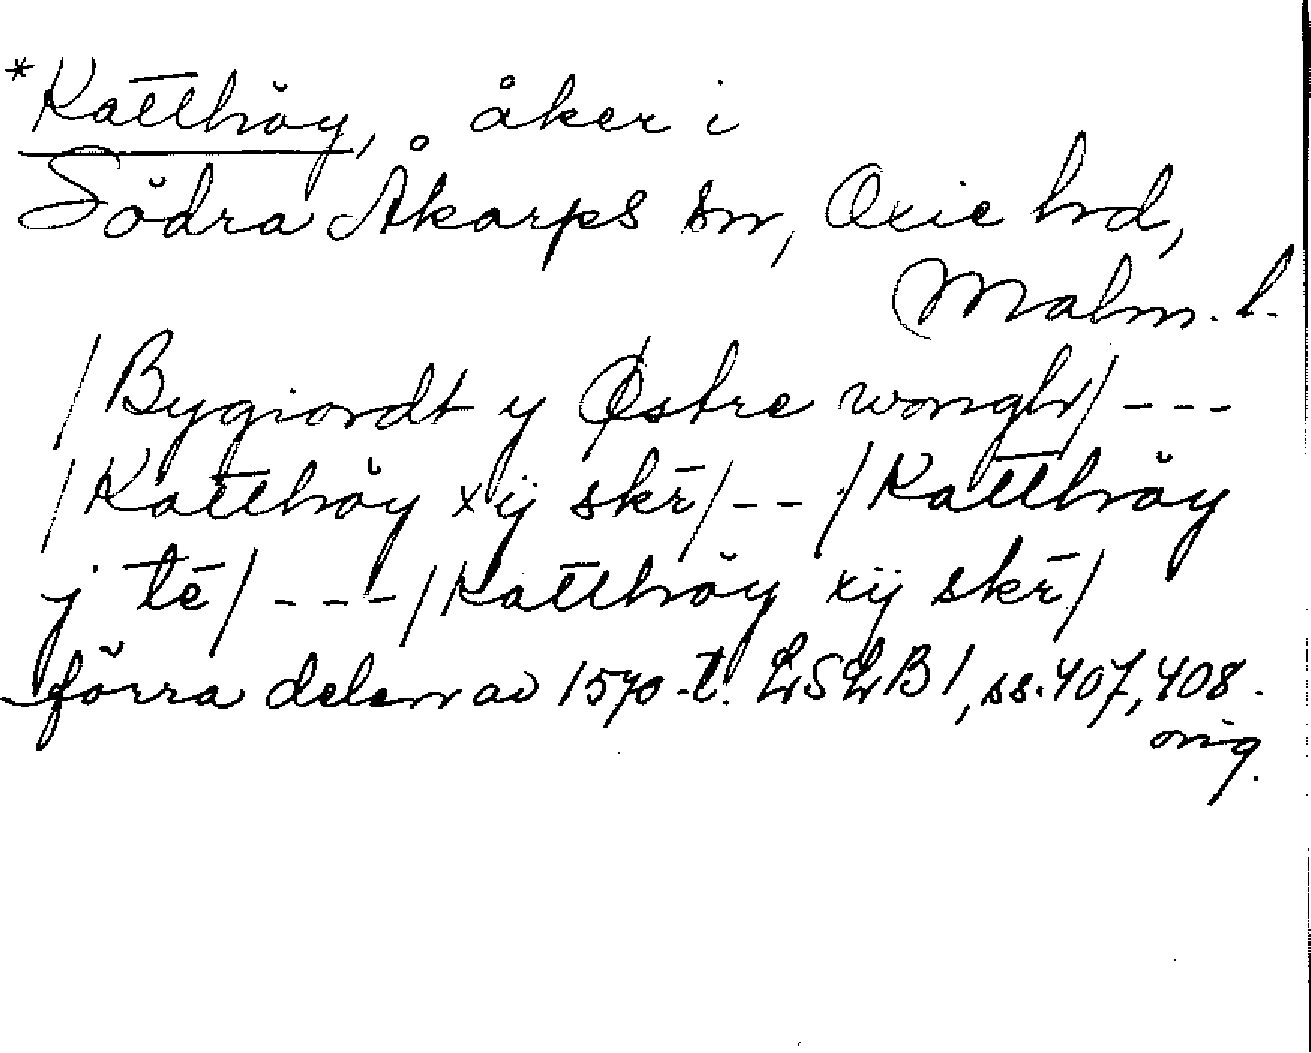 *Katthöy, åker i
Södra Åkarps sn, Oxie hd,
Malm. l.
/Bygiordt y Østre wongh/ ---
/Katthöy xij skr̄/ --- /Katthöy
j tē/ --- /Katthöy xij skr̄/
förra delen av 1570-t. LSLB 1, ss. 407, 408.
orig.